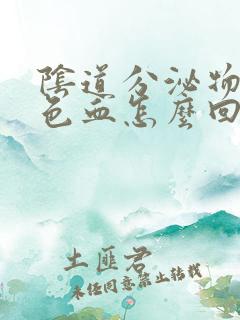 陰道分泌物
色血怎麼回
土匪君
未經同意禁止轉載